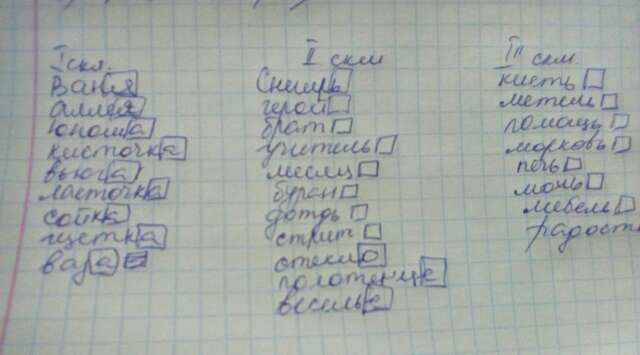 I скл.
Ваня
аллея
юноша
кисточка
вьюга
ласточка
сойка
щетка
ваза
II скл
Снегирь
герой
брат
учитель
месяц
буран
дождь
стриж
стекло
полотенце
веселье
III скл.
кисть
метель
помощь
морковь
печь
мочь
мебель
радость